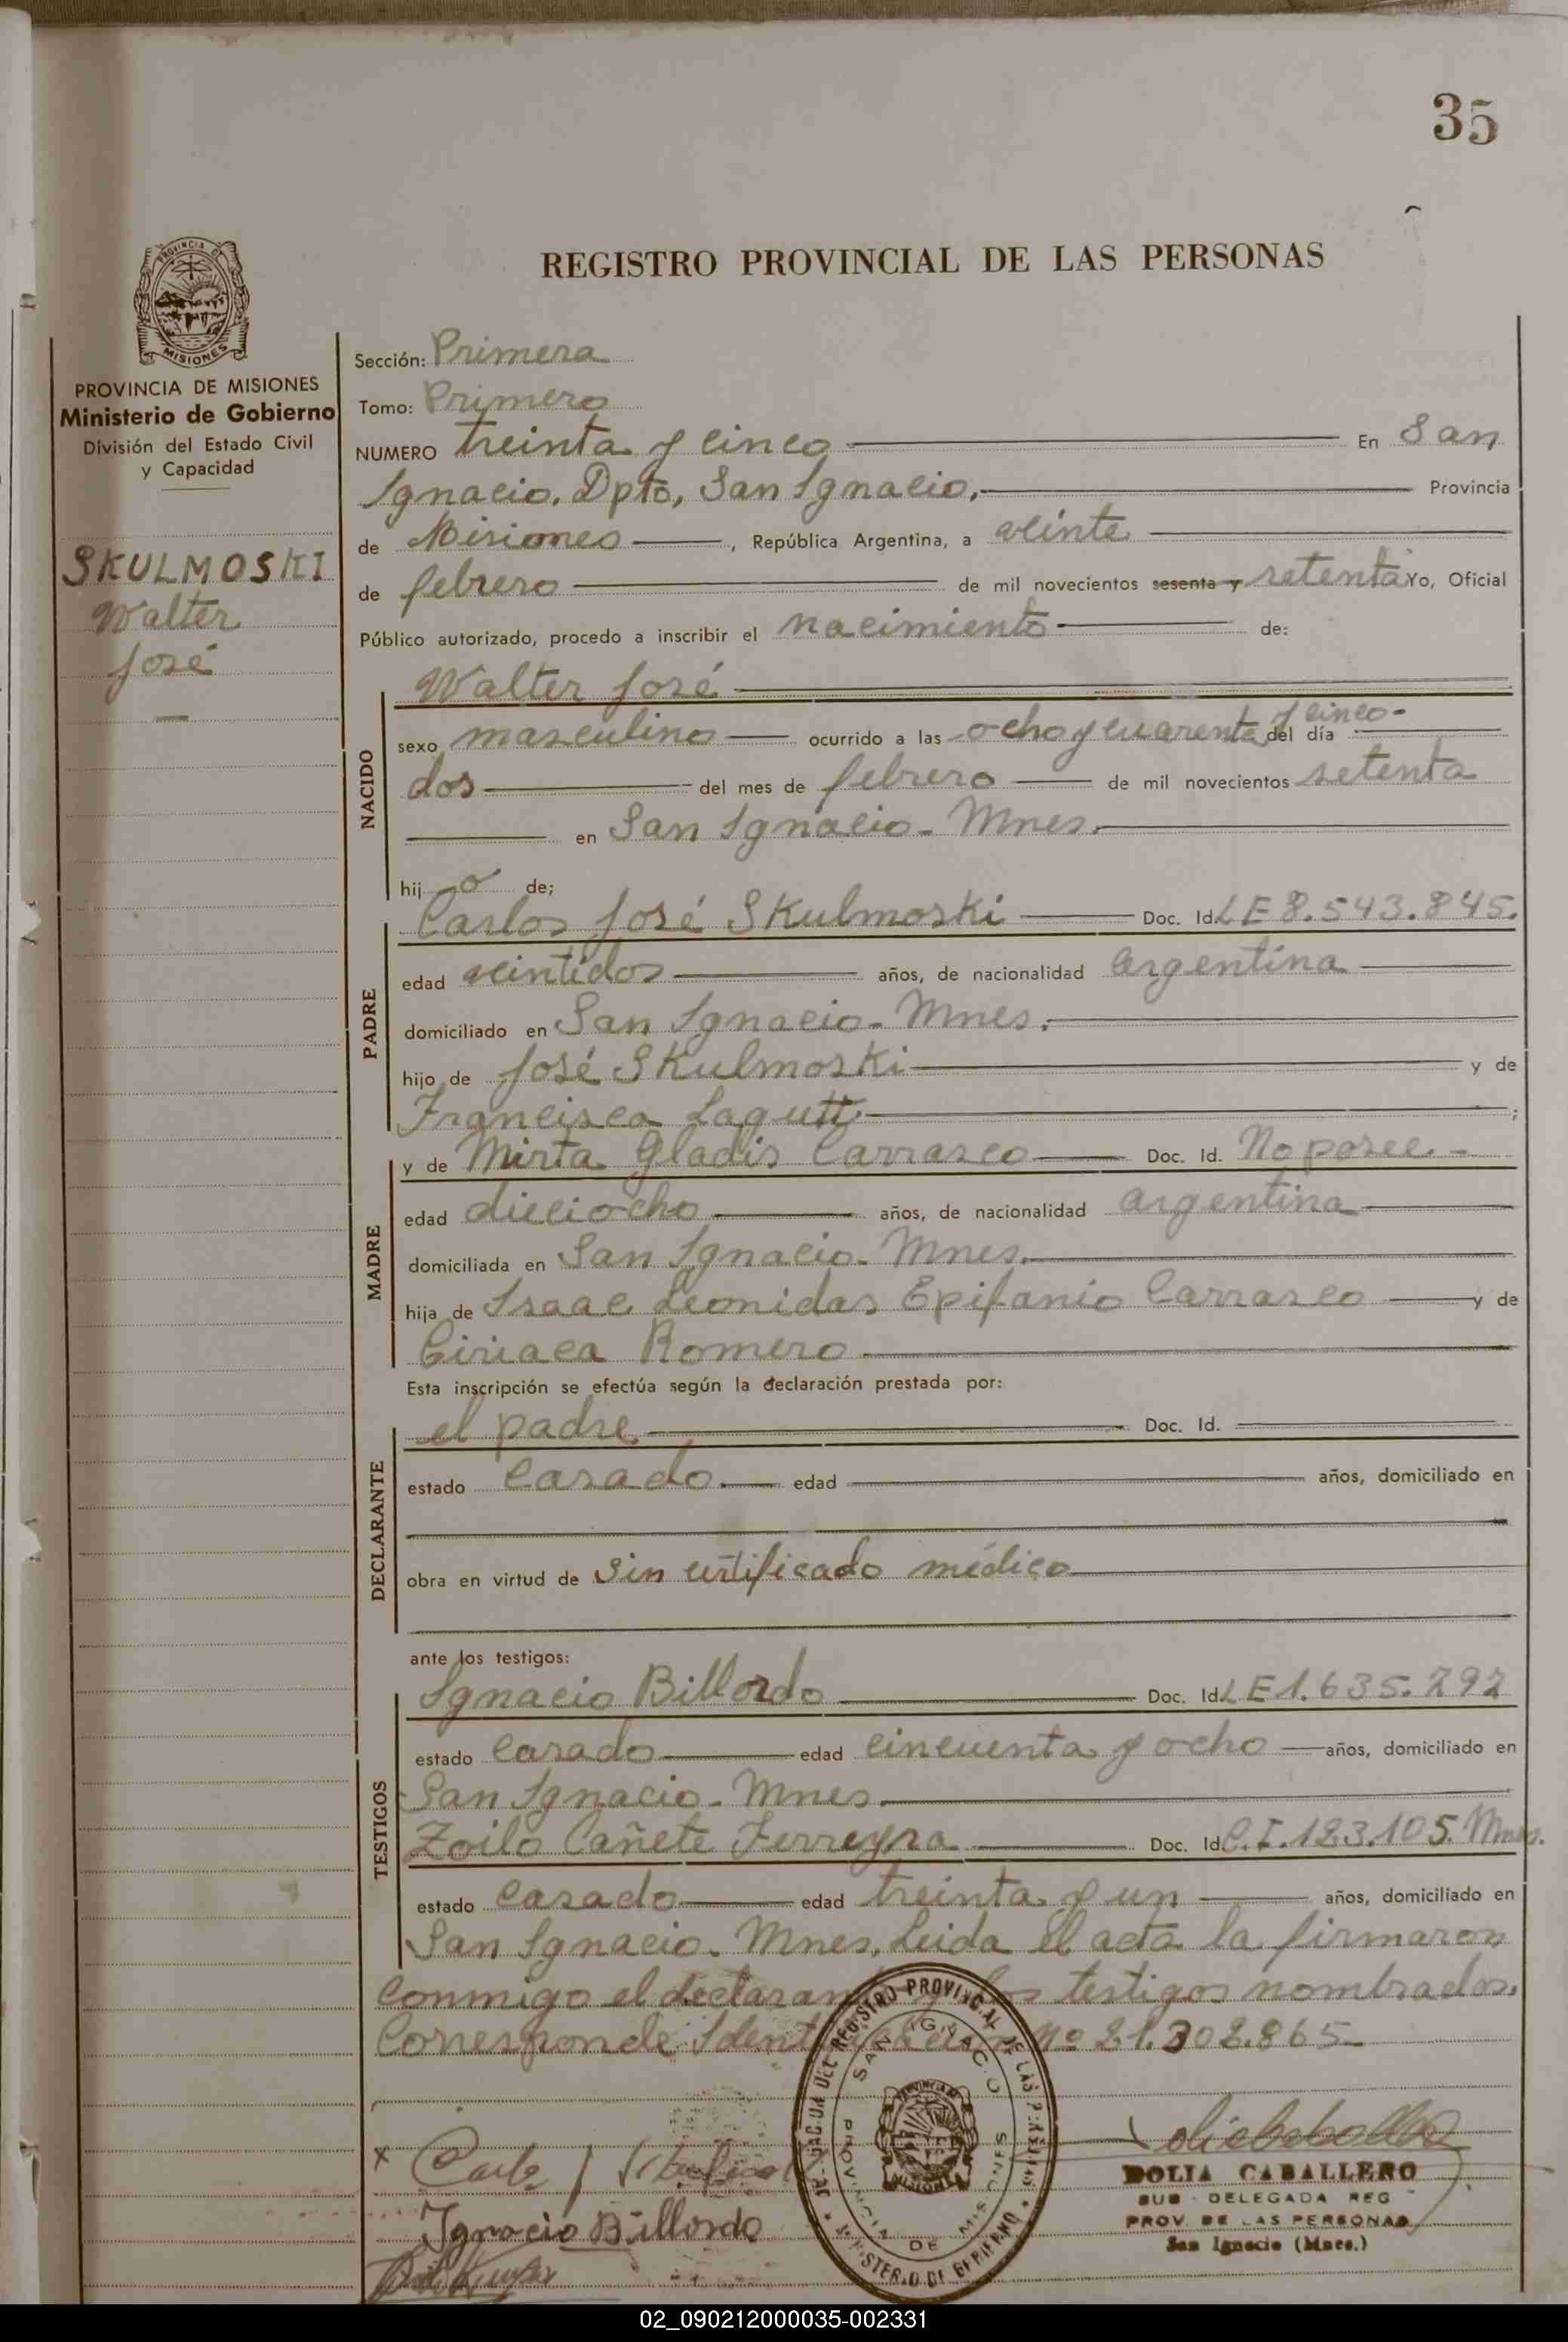 35
REGISTRO PROVINCIAL DE LAS PERSONAS
PROVINCIA DE
MISIONES
PROVINCIA DE MISIONES
Ministerio de Gobierno
División del Estado Civil
y Capacidad
SKULMOSKI
Walter
José
Sección: Primera
Tomo: Primero
NUMERO treinta y cinco En San
Ignacio, Dpto, San Ignacio, Provincia
de Misiones, República Argentina, a veinte
de febrero de mil novecientos sesenta y setenta Yo, Oficial
Público autorizado, procedo a inscribir el nacimiento de:
NACIDO
Walter José
sexo masculino ocurrido a las ocho y cuarenta y cinco- del día
dos del mes de febrero de mil novecientos setenta
en San Ignacio- Mnes.
hijo de;
PADRE
Carlos José Skulmoski Doc. Id. LE 8.543.845.
edad veintidos años, de nacionalidad argentina
domiciliado en San Ignacio- Mnes.
hijo de José Skulmoski y de
Francisca Lagutt ;
MADRE
y de Mirta Gladis Carrasco Doc. Id. No posee.-
edad dieciocho años, de nacionalidad argentina
domiciliada en San Ignacio- Mnes.
hija de Isaac Leonidas Epifanio Carrasco y de
Ciriaca Romero
Esta inscripción se efectúa según la declaración prestada por:
DECLARANTE
el padre Doc. Id.
estado casado edad años, domiciliado en
obra en virtud de sin certificado médico
ante los testigos:
TESTIGOS
Ignacio Billordo Doc. Id. LE 1.635.792
estado casado edad cincuenta y ocho años, domiciliado en
San Ignacio- Mnes.
Zoilo Cañete Ferreyra Doc. Id. C.I. 123.105. Mnes.
estado casado edad treinta y un años, domiciliado en
San Ignacio. Mnes, Leida el acta la firmaron
conmigo el testigos nombrados.
Corresponde Nº 21.302.865
REGISTRO PROVINCIAL DE LAS PERSONAS
SAN IGNACIO
PROVINCIA DE MISIONES
MINISTERIO DE GOBIERNO
Ignacio Billordo
DOLIA CABALLERO
SUB - DELEGADA REG
PROV. DE LAS PERSONAS
San Ignacio (Mnes.)
02_090212000035-002331